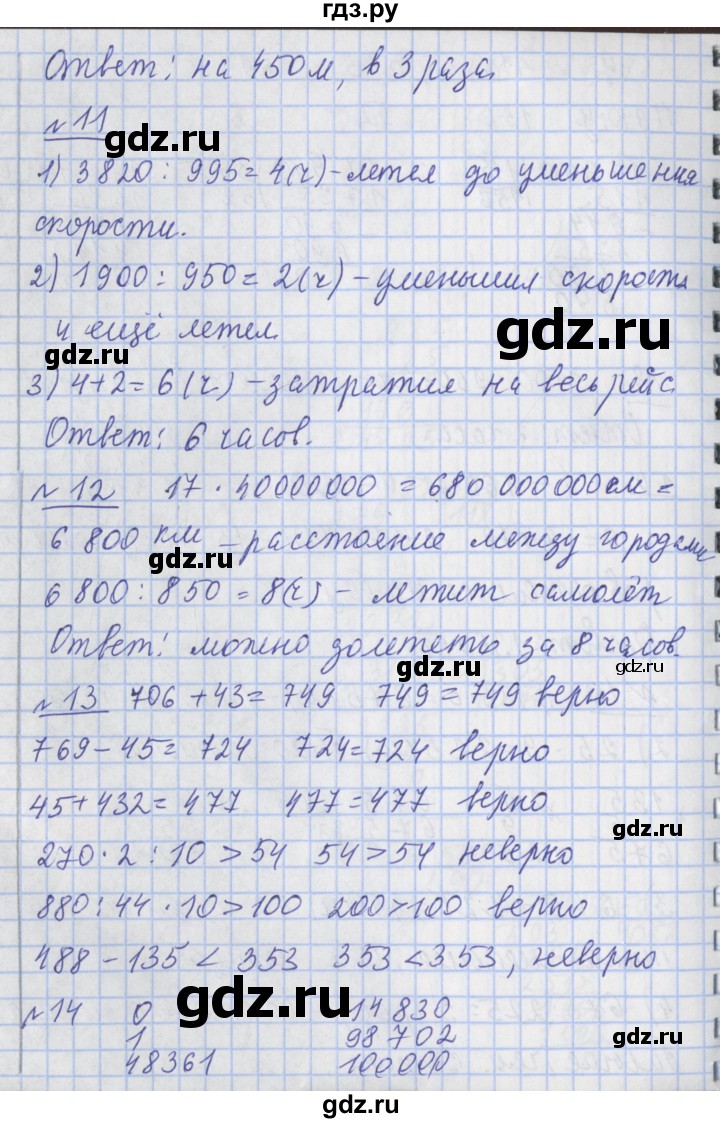 гдз.ру
Ответ: на 450 м, в 3 раза.
№ 11
gdz.ru
1) 3820 : 995 = 4(ч) - летел до уменьшения
скорости.
2) 1900 : 950 = 2(ч) - уменьшил скорость
gdz.ru
и ещё летел.
gdz.ru
3) 4+2 = 6 (ч) - затратил на весь рейс.
Ответ: 6 часов.
№ 12 17 · 40000000 = 680 000 000 см =
6 800 км - расстояние между городами
gdz.ru
6 800 : 850 = 8(ч) - летит самолёт
Ответ: можно долететь за 8 часов.
gdz.ru
gdz.ru
№ 13 706 + 43 = 749 749 = 749 верно
769 - 45 = 724 724 = 724 верно
45 + 432 = 477 477 = 477 верно
gdz.ru
270 · 2 : 10 > 54 54 > 54 неверно
880 : 44 · 10 > 100 200 > 100 верно
488 - 135 < 353 353 < 353, неверно
gdz.ru
№ 14 0 14 830
1 98 702
gdz.ru
48361 100000
gdz.ru